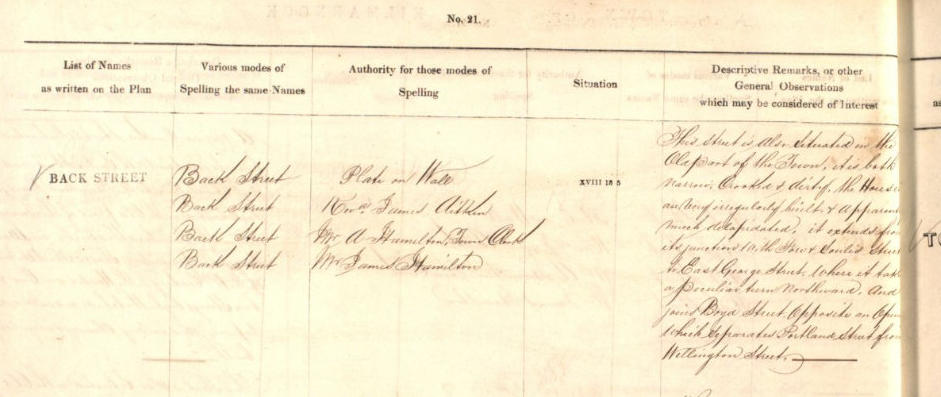 No. 21.
List of Names
as written on the Plan
Various modes of
Spelling the same Names
Authority for those modes of
Spelling
Situation
Descriptive Remarks, or other
General Observations
which may be considered of Interest
BACK STREET
Back Street
Back Street
Back Street
Back Street
Plate on Wall
Revd. James Aitken
Mr A Hamilton, Town Clerk
Mr James Hamilton
XVIII 18 5
This street is also situated in the
Old part of the Town, it is both
narrow, Crooked & dirty, the House
are very irregularly built, &
much delapidated, it extends
its junction with Fore & Soulis
to East George Street, Where it
a peculiar turn Northward, And
joins Boyd Street Opposite an
which separates Portland Street
Wellington Street.